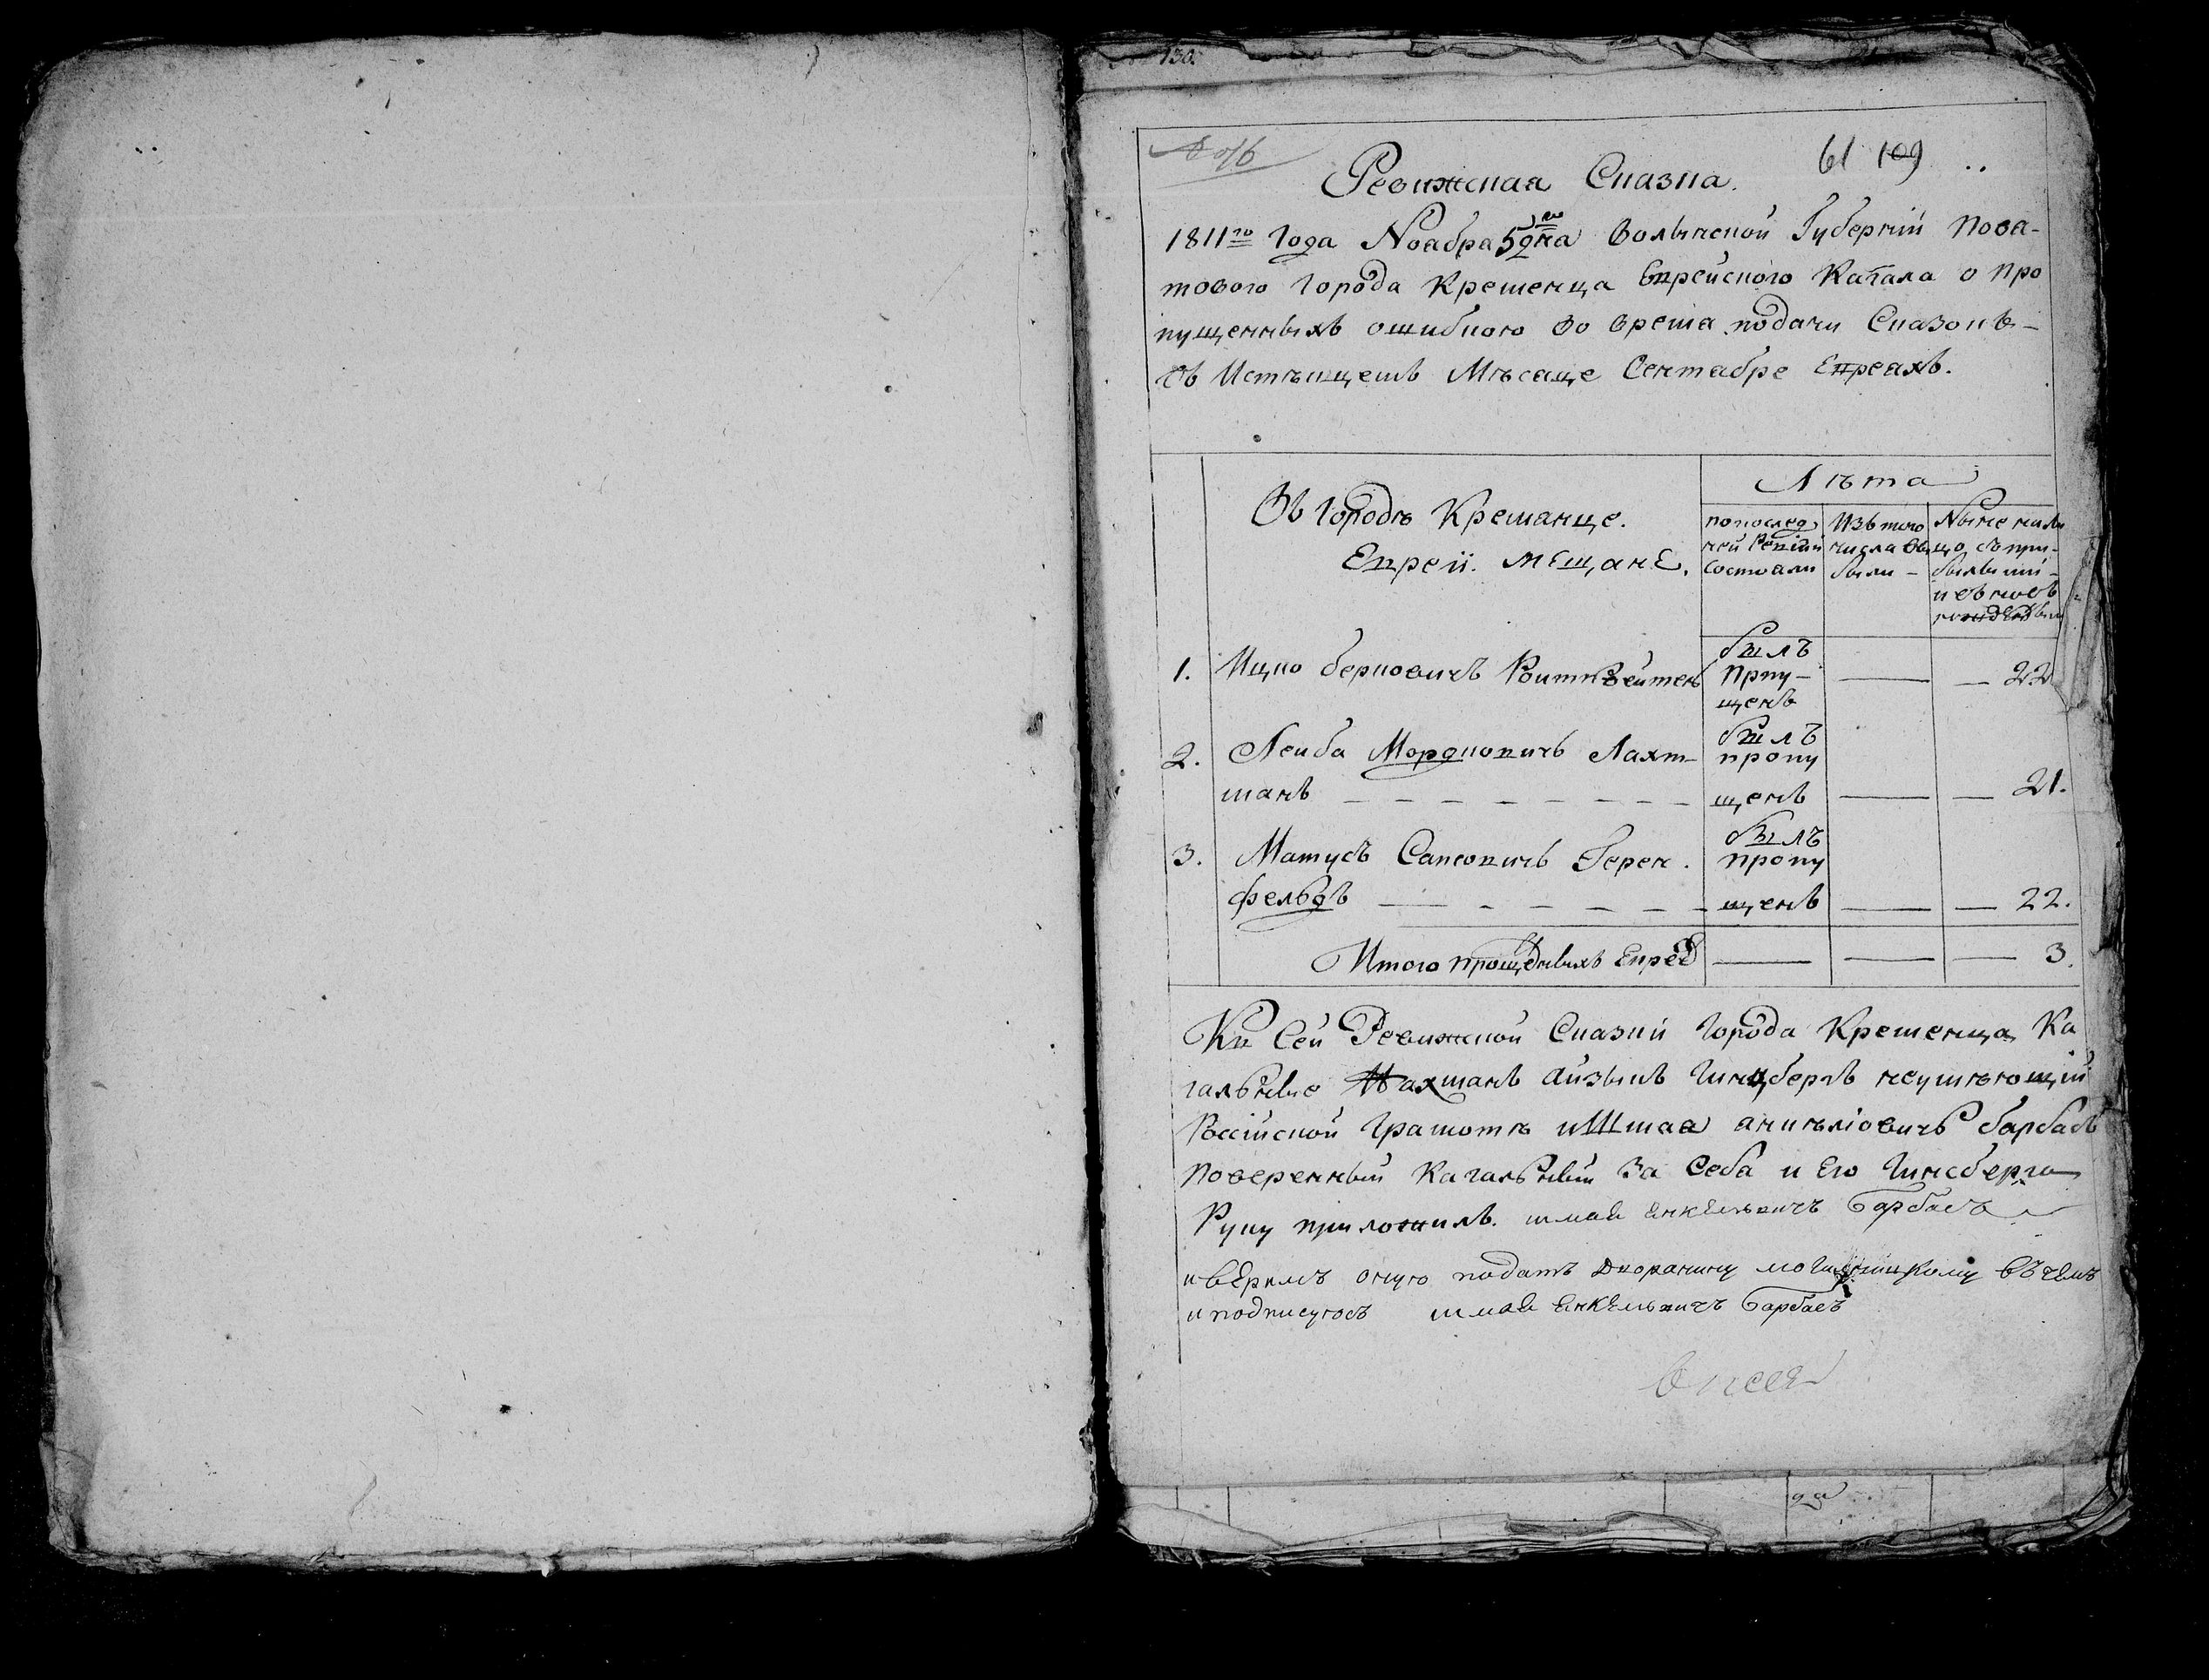 130.
61 109
Ревижская Сказка.
1811го Года Ноября 5го дня Волынской Губерний Пова-
тового Города Кременца Еврейского Кагала о про
пущенныхъ ошибкою во время подачи Сказокъ-
въ Истекшемъ Мѣсяце Сентябре Евреяхъ.
Въ Городѣ Кременце.
Евреи. мещане.
Лѣта
по послед
ней Ревизии
состояли
Изъ того
числа вы
были -
Ныне на ли
цо съ при-
былыми-
и съ новъ
рожденными
1. Ицко Берковичъ
былъ
Прпу-
щенъ
— 22
2. Лейба Мордковичъ Лахт-
манъ
былъ
пропу
щенъ
— 21.
3. Матусъ Герен.
фельдъ
былъ
пропу
щенъ
— 22.
Итого Еврей
— 3.
Къ Сей Ревижской Сказки Города Кременца Ка
гальные Нахманъ Айзыкъ Гинцбергъ неумѣющий
Россійской Грамотѣ и Шмая Барбасъ
Поверенный Кагальный За Себя и Его Гинсберга
Руку приложилъ. шмая енкелевичъ Барбасъ
и веримъ оную подать Дворянину въ чемъ
и подписуюсь шмая енкелевичъ Барбасъ
да